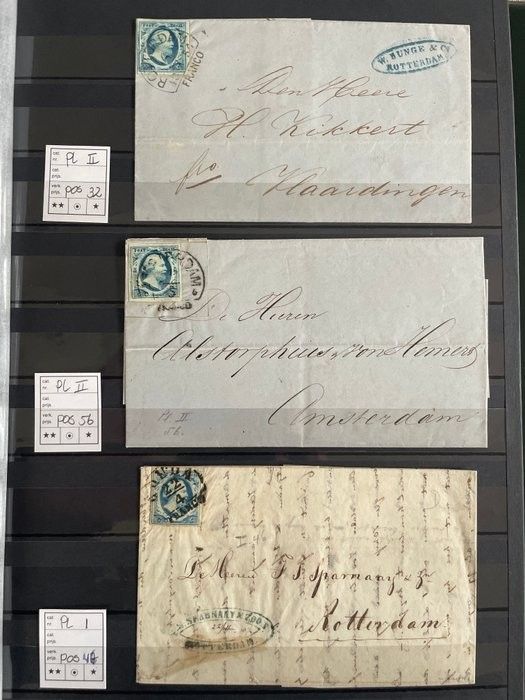 ROTTERDAM
FRANCO
W. BUNGE & Co
ROTTERDAM
Den Heere
H. Kikkert
fro Vlaardingen
cat. nr. PL II
cat. prijs
verk. prijs pos 32
★★ ⊙ ★
AMSTERDAM
FRANCO
De Heeren
Alstorphius & von Hemert
Amsterdam
Pl. II
56.
cat. nr. PL II
cat. prijs
verk. prijs pos 56
★★ ⊙ ★
GOUDA
22
4
FRANCO
De Heeren F. J. Sparnaay & Zn
Rotterdam
SPARNAAY & ZOON
ROTTERDAM
cat. nr. PL I
cat. prijs
verk. prijs
★★ ⊙ ★